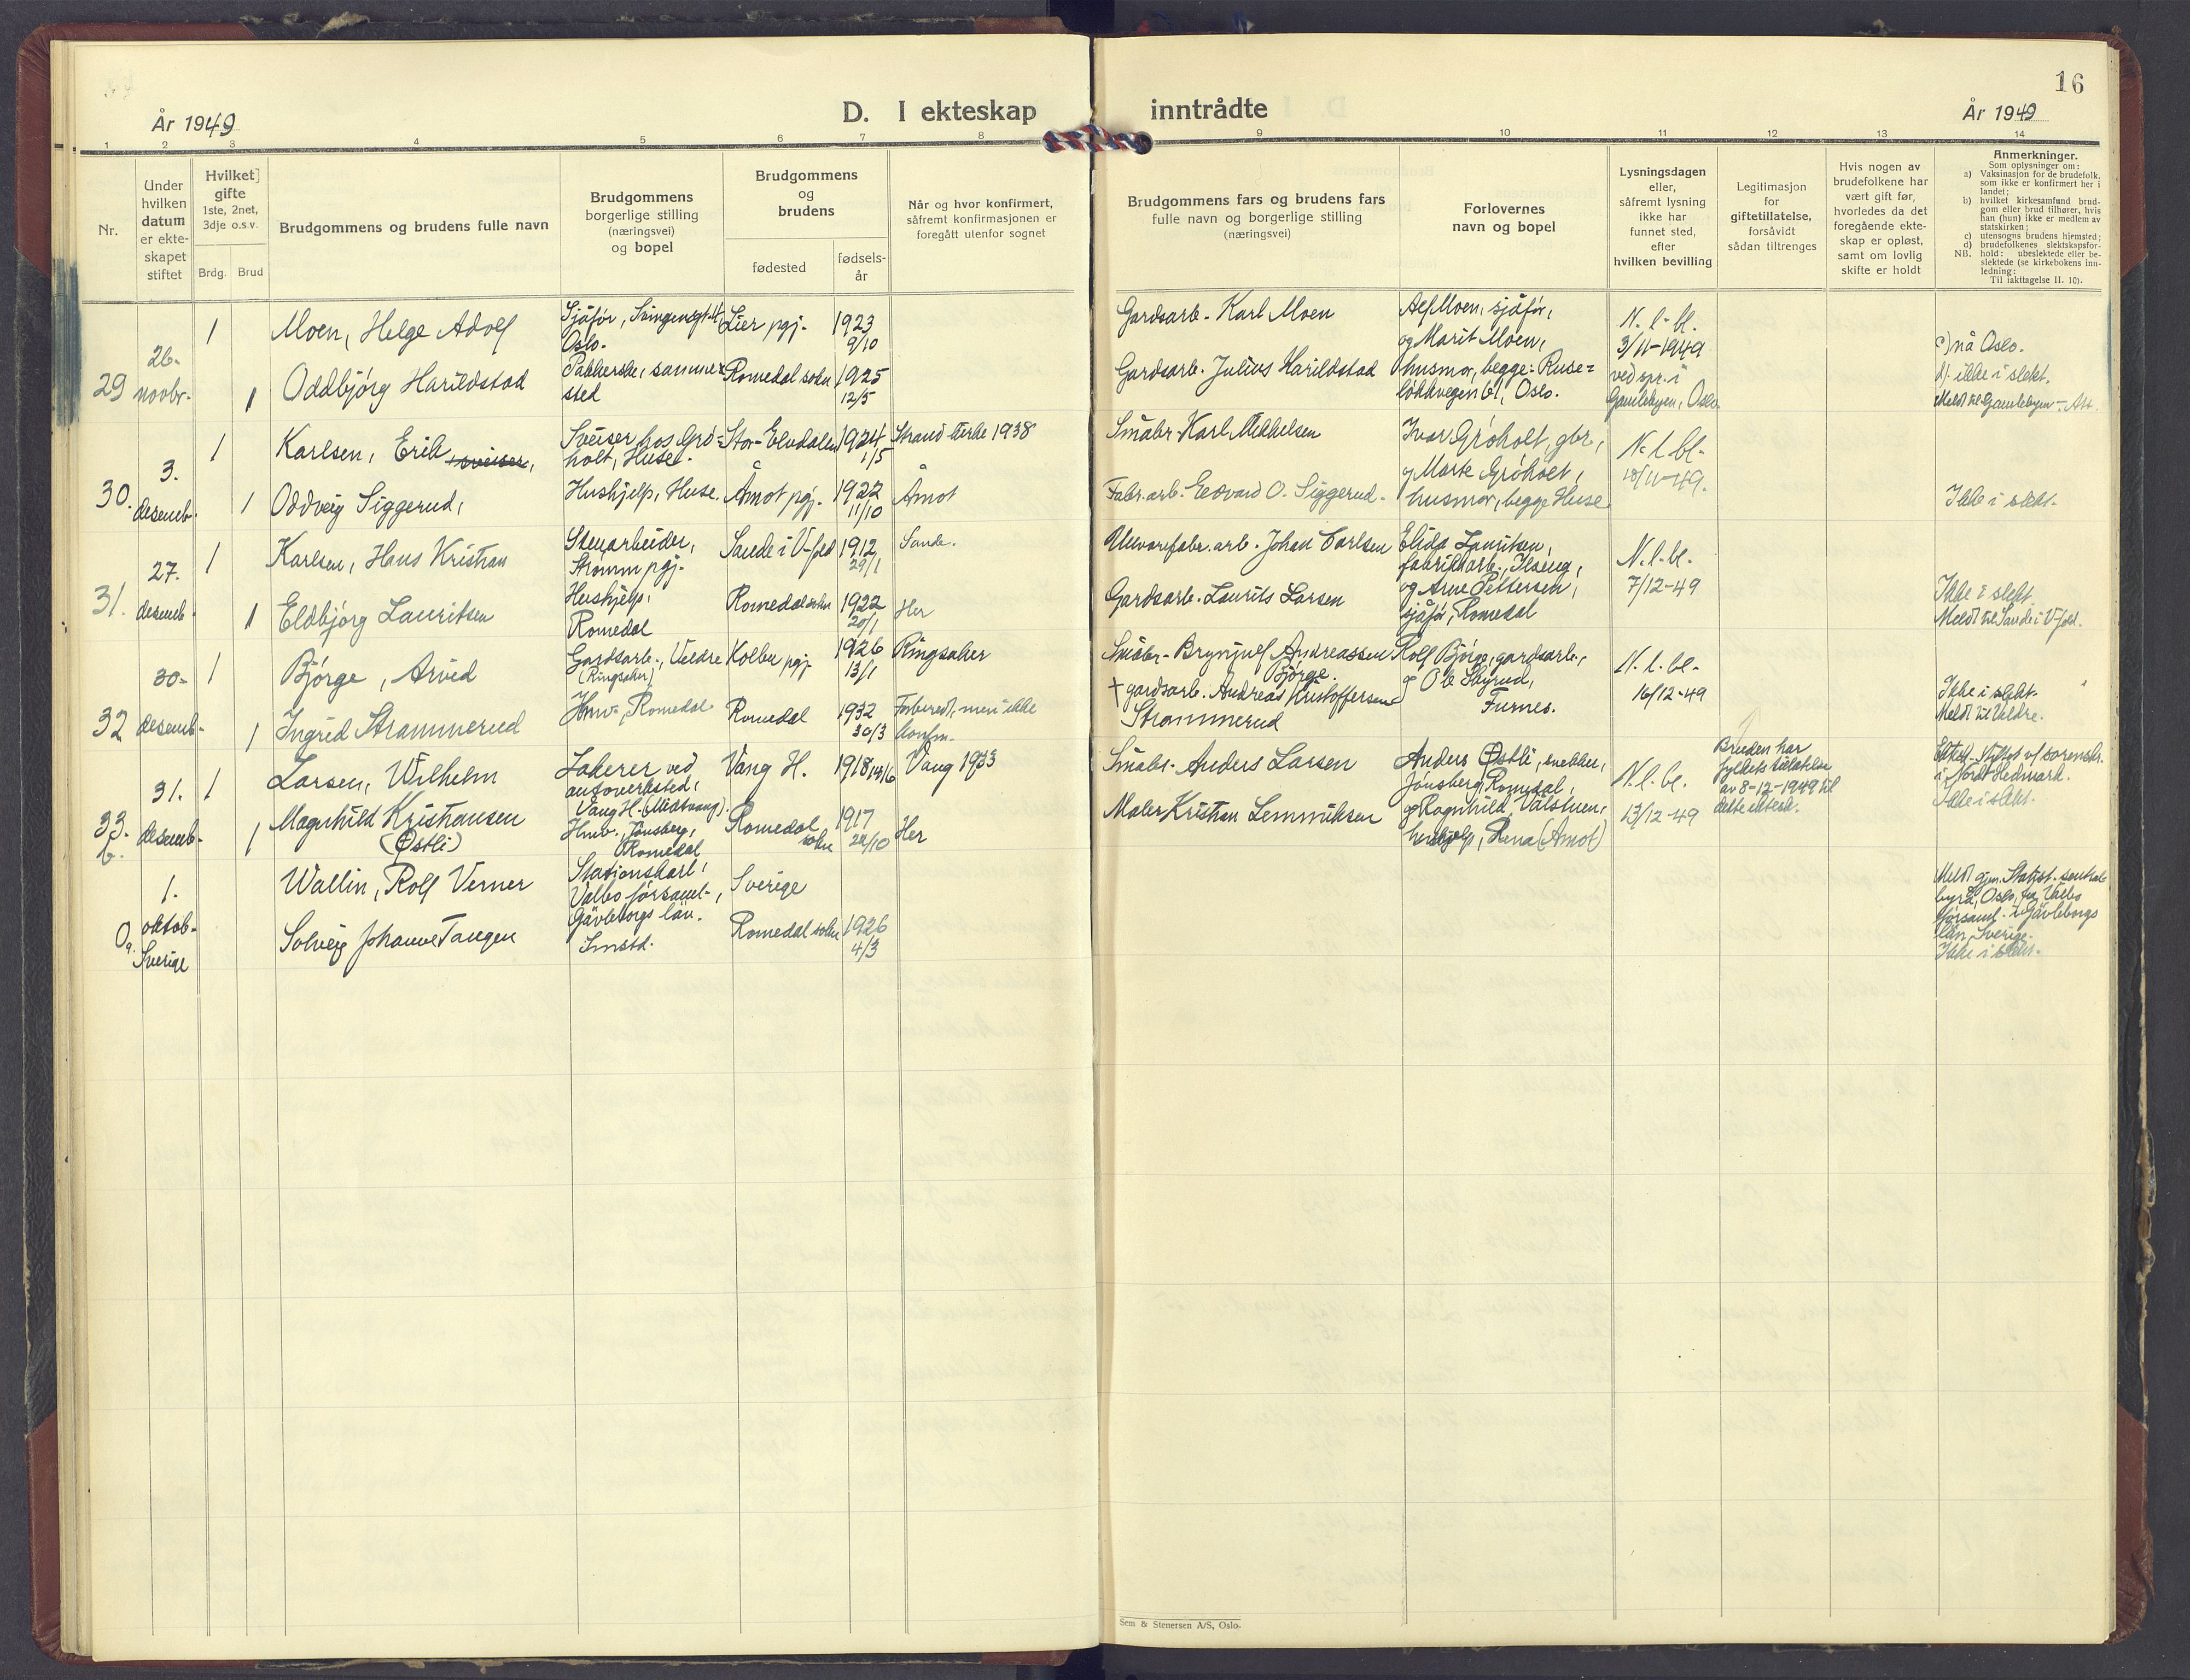 16
År 1949
D. I ekteskap
inntrådte
År 1949
1
2
3
4
5
6
7
8
9
10
11
12
13
14
Nr.
Under
hvilken
datum
er ekte-
skapet
stiftet
Hvilket
gifte
1ste, 2net,
3dje o.s.v.
Brdg.
Brud
Brudgommens og brudens fulle navn
Brudgommens
borgerlige stilling
(næringsvei)
og bopel
Brudgommens
og
brudens
fødested
fødsels-
år
Når og hvor konfirmert,
såfremt konfirmasjonen er
foregått utenfor sognet
Brudgommens fars og brudens fars
fulle navn og borgerlige stilling
(næringsvei)
Forlovernes
navn og bopel
Lysningsdagen
eller,
såfremt lysning
ikke har
funnet sted,
efter
hvilken bevilling
Legitimasjon
for
giftetillatelse,
forsåvidt
sådan tiltrenges
Hvis nogen av
brudefolkene har
vært gift før,
hvorledes da det
foregående ekte-
skap er opløst,
samt om lovlig
skifte er holdt
Anmerkninger.
Som oplysninger om:
a) Vaksinasjon for de brudefolk,
som ikke er konfirmert her i
landet;
b) hvilket kirkesamfund brud-
gom eller brud tilhører, hvis
han (hun) ikke er medlem av
statskirken;
c) utensogns brudens hjemsted;
d) brudefolkenes slektskapsfor-
hold: ubeslektede eller be-
slektede (se kirkebokens inn-
ledning:
NB.
Til iakttagelse II. 10).
29
26.
novbr.
1
Moen, Helge Adolf
Sjåfør,
Oslo.
Lier pgj.
1923
9/10
Gardsarb. Karl Moen
Alf Moen, sjåfør,
og Marit Moen,
husmor, begge: Ruse=
løkkvegen 61, Oslo.
N. l. bl.
3/11-1949
ved spr. i
Gamlebyen, Oslo
c) nå Oslo.
d) ikke i slekt.
Meldt til Gamlebyen
1
Oddbjørg Harildstad
Pakkerske, samme=
sted
Romedal sokn
1925
12/5
Gardsarb. Julius Harildstad
30.
3.
desemb.
1
Karlsen, Erik sveiser,
Sveiser hos Grø=
holt, Huse.
Stor-Elvdalen
1924
1/5
Strand kirke 1938
Småbr. Karl Mikkelsen
Ivar Grøholt, gbr.,
og Marte Grøholt,
husmor, begge Huse
N. l. bl.
18/11-49.
Ikke i slekt.
1
Oddveig Siggerud,
Hushjelp, Huse.
Åmot pgj.
1922
11/10
Åmot
Fabr.arb. Edvard O. Siggerud.
31.
27.
desemb.
1
Karlsen, Hans Kristian
Stenarbeider,
Strømm pgj.
Sande i V-fold
1912
29/1
Sande.
Ullvarefabr.arb. Johan Carlsen
Elida Lauritsen,
fabrikkarb., Ilseng,
og Arne Pettersen,
sjåfør, Romedal
N. l. bl.
7/12-49
Ikke i slekt
Meldt til Sande i V-fold.
1
Eldbjørg Lauritsen
Hushjelp,
Romedal
Romedal sokn
1922
20/1
Her
Gardsarb. Laurits Larsen
32
30.
desemb.
1
Bjørge, Arvid
Gardsarb., Veldre
(Ringsaker)
Kolbu pgj.
1926
13/1
Ringsaker
Småbr. Brynjulf Andreassen
Bjørge.
Rolf Bjørge, gardsarb.,
og Ole Skyrud,
Furnes.
N. l. bl.
16/12-49
Ikke i slekt.
Meldt til Veldre.
1
Ingrid Strammerud
Hmv. Romedal
Romedal
1932
30/3
Forberedt, men ikke
konfm.
† gardsarb. Andreas Kristoffersen
Strammerud
33.
31.
desemb.
1
Larsen, Wilhelm
Lakerer ved
autoverksted,
Vang H. (Midtvang).
Vang H.
1918 14/6
Vang 1933
Småbr. Anders Larsen
Anders Østli, snekker,
Jønsberg, Romedal,
og Ragnhild Valstuen,
hushjelp, Rena (Åmot)
N. l. bl.
13/12-49
Bruden har
fylkets tillatelse
av 8-12-1949 til
dette ektesk.
i Nord-Hedmark.
Ikke i slekt.
1
Magnhild Kristiansen
(Østli)
Hmv., Jønsberg,
Romedal
Romedal
sokn
1917
24/10
Her
Maler Kristian Lemmiksen
1.
oktob.
Sverige
Wallin, Rolf Verner
Stationskarl,
Valbo församl.,
Gävleborgs län.
Sverige
Meldt gjm. Statist. sentral-
byrå, Oslo, fra Valbo
församl. i Gävleborgs
län, Sverige.
Ikke i slekt.
Solveig Johanne Tangen
Romedal sokn
1926
4/3
Sem & Stenersen A/S, Oslo.